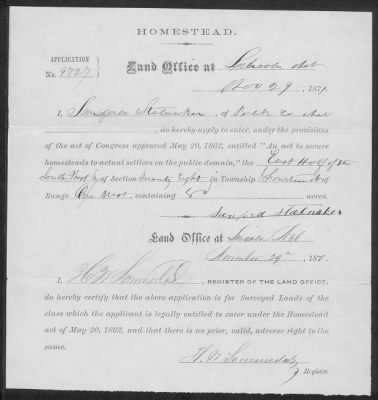 HOMESTEAD.
APPLICATION
No. 9727
Land Office at Lincoln Neb
Nov 29, 1871
I, Sanford Stetnaker, of Polk Co Neb
, do hereby apply to enter, under the provisions
of the act of Congress approved May 20, 1862, entitled "An act to secure
homesteads to actual settlers on the public domain," the East Half of the
South West ¼ of Section Twenty Eight in Township Fourteen N of
Range One West, containing acres.
Sanford
Land Office at Lincoln Neb
November 29th 1871.
I, , REGISTER OF THE LAND OFFICE,
do hereby certify that the above application is for Surveyed Lands of the
class which the applicant is legally entitled to enter under the Homestead
act of May 20, 1862, and that there is no prior, valid, adverse right to the
same.
Register.